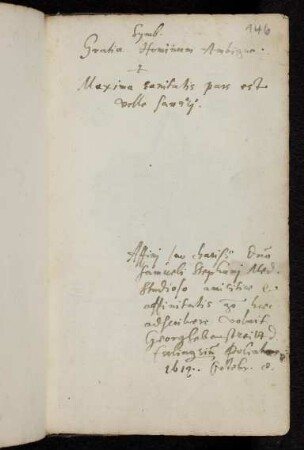 146
Symb.
Gratia Hominum Ambigua.
+
Maxima sanitatis pars est
velle sanarj.
Affinj suo chariss: Dno
Samueli Stephanj Med.
Studioso amicitiae &
affinitatis go haec
adscribere voluit
Georg
1612. Octobr. 8.